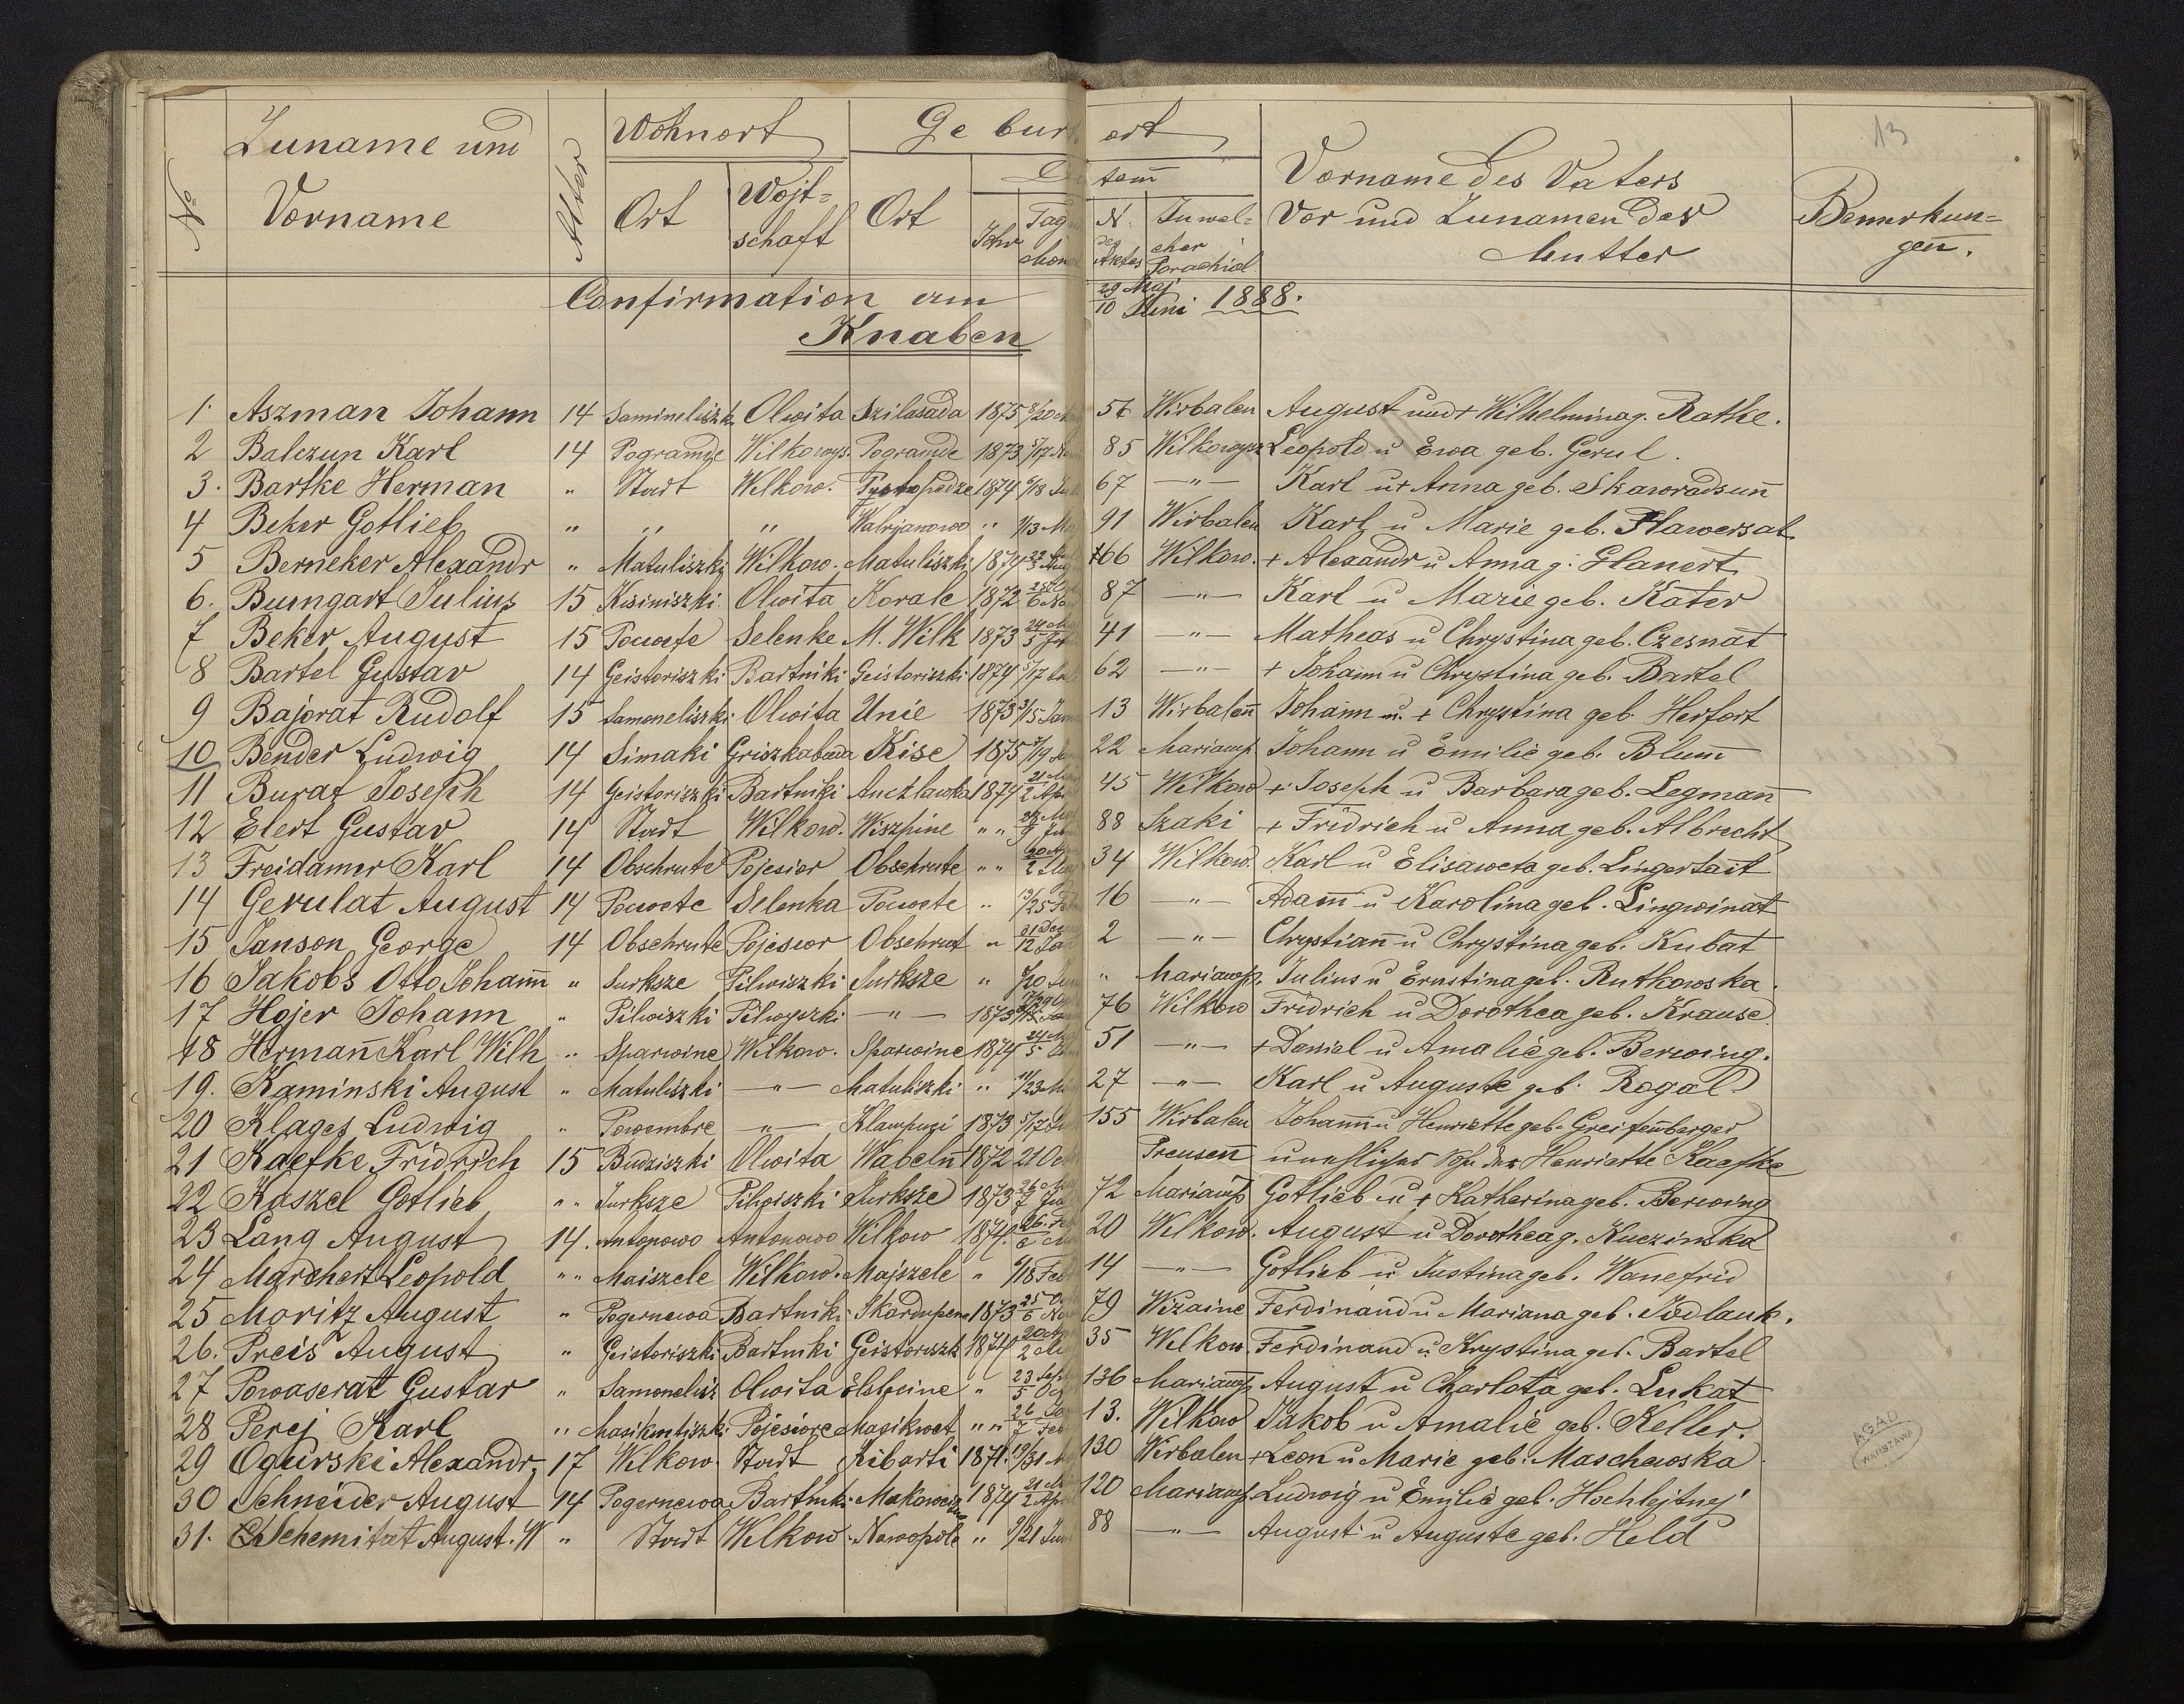 13
Zuname und Vorname
No
Alter
Wohnort
Ort
Wojt=
schaft
Geburtsort
Ort
Jahr
Tag
N des Aktes
In wel=
cher
Parachial
Vorname des Vaters
Vor und Zunamen der
Mutter
Bemerkun=
gen.
Confirmation am 29 Maj / 10 Juni 1888.
Knaben
1. Aszman Johann 14 Olwita Szilasada 1875 56 Wirbalen August und + Wilhelmina g. Rathke.
2 Balczun Karl 14 Pogramde Wilkowys. Pogramde 1873 5/17 85 Wilkowysz Leopold u Ewa geb. Gerul.
3. Bartke Herman " Stadt Wilkow. 1874 6/18 67 —"— Karl u + Anna geb. Skawradsun̄
4 Beker Gotlieb " " " Walrjanowo " 1/13 91 Wirbalen Karl u Marie geb. Plawersat
5 Berneker Alexandr " Matuliszki Wilkow. Matuliszki 1874 166 Wilkow. + Alexandr u Anna g. Glanert
6. Bumgart Julius 15 Kisiniszki Olwita Korale 1872 87 —"— Karl u Marie geb. Kater
7 Beker August 15 Powete Selenke M. Wilk 1873 41 —"— Matheas u Chrystina geb. Czesnat
8 Bartel Gustav 14 Geistoriszki Bartniki Geistoriszki 1874 5/17 62 —"— + Johann u Chrystina geb. Bartel
9 Bajorat Rudolf 15 Samoneliszki Olwita Unie 1873 3/15 13 Wirbalen̄ Johann u. + Chrystina geb. Herfort
10 Bender Ludwig 14 Simaki Griszkabuda Kise 1875 7/19 22 Mariamp Johann u Emilie geb. Blum̄
11 Buraf Joseph 14 Geistoriszki Bartniki Auczlawka 1874 45 Wilkow + Joseph u Barbara geb. Legman̄
12 Elert Gustav 14 Stadt Wilkow. Wiszpine " " 88 Szaki + Fridrich u Anna geb. Albrecht
13 Freidamer Karl 14 Obschrute Pojesior Obschrute " " 34 Wilkow. Karl u Elisaweta geb. Lingertait
14 Gerulat August 14 Powete Selenka Powete " 13/25 16 —"— Adam̄ u Karolina geb. Lingwinat
15 Janson George 14 Obschrute Pojesior Obschrut " 2 —"— Chrystian̄ u Chrystina geb. Kubat
16 Jakobs Otto Joham̄ " Jurksze Pilwiszki Jurksze " " Mariamp. Julius u Ernstina geb. Rutkowska.
17 Hojer Johann " Pilwiszki Pilwyszki —"— 1873 76 Wilkow Fridrich u Dorothea geb. Krause
18 Herman̄ Karl Wilh " Sparwine Wilkow. Sparwine 1874 51 —"— + Daniel u Amalie geb. Berwing.
19. Kaminski August " Matuliszki —"— Matuliszki " 11/23 27 —"— Karl u Auguste geb. Rogal
20 Klages Ludwig " Powembre —"— Klampuzi 1873 5/17 155 Wirbalen Johann u Henriette geb. Greifenberger
21 Kaefke Fridrich 15 Budziszki Olwita Wabeln̄ 1872 21 Oct Preusen̄ unehlicher Sohn der Henriette Kaefke
22 Kaszel Gotlieb " " Jurksze Pilwiszki Jurksze 1873 72 Mariamp Gotlieb u + Katherina geb. Berwing
23 Lang August 14. Antonowo Antonowo Wilkow 1874. 20 Wilkow. August u Dorothea g. Kuczinska
24 Marchert Leopold " " Maiszele Wilkow. Majszele " 6/18 Feb 14 —"— Gotlieb u Justina geb. Wanefrid
25 Moritz August " Pogernewa Bartniki Skardupene 1873 79 Wizaine Ferdinand u Mariana geb. Jodlauk.
26. Preis August " Geistoriszki Bartniki Geistoriszki 1874 35 Wilkow. Ferdinand u Krystina geb. Bartel
27 Powaserat Gustav " Samonelisz Olwita " 23 Sept 136 Mariamp August u Charlota geb. Lukat
28 Perej Karl " Masikwtiszki Pojesiore Masikwet " " 13. Wilkow Jakob u Amalie geb. Keller.
29 Ogurski Alexandr. 17 Wilkow. Stadt Kibarti 1871. 19/31 130 Wirbalen + Leon u Marie geb. Maschewska
30 Schneider August 14 Pogernewa Bartniki 1874 120 Mariamp Ludwig u Emilie geb. Hochlejtnej
31. Schemitat August. W " Stadt Wilkow. Nowopole " 9/21 Jun 88 —"— August u Auguste geb. Held
AGAD
WARSZAWA